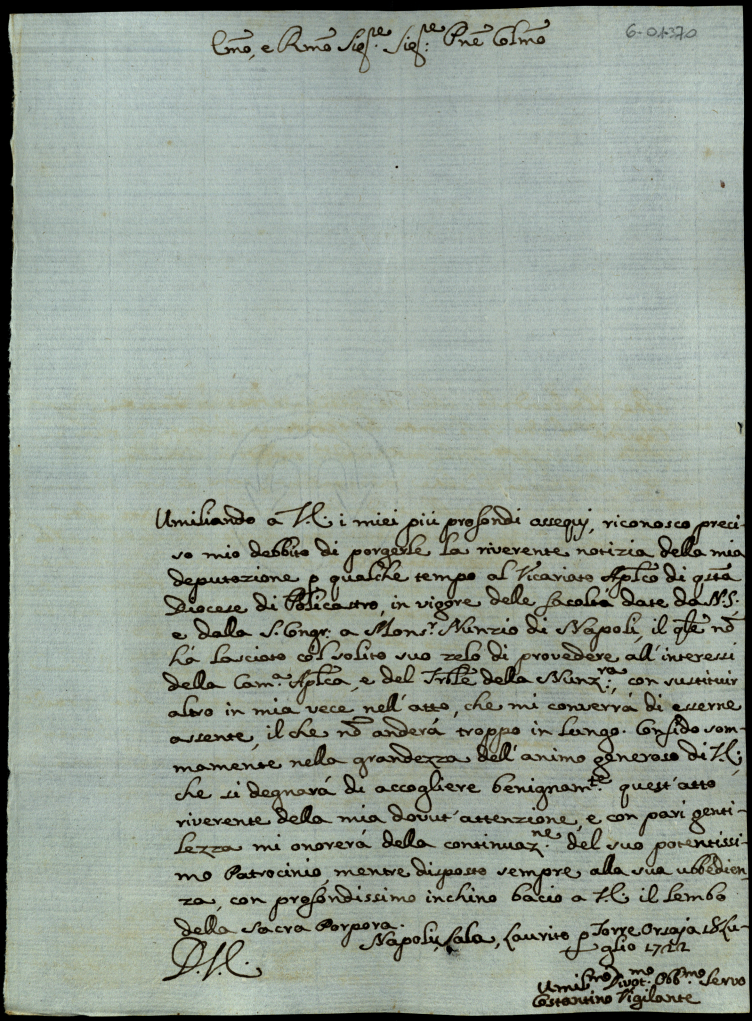 6-01370
Emo, e Rmo Sigre. Sigre: Pne Colmo
Umiliando a V.E. i miei più profondi assequj, riconosco preci-
so mio debbito di porgerle la riverente notizia della mia
deputazione p qualche tempo al Vicariato Aplco di qsta
Diocese di Policastro, in vigore delle facoltà date da N.S:
e dalla S. Congr: a Monsr. Nunzio di Napoli, il qle nō
hà lasciato col solito suo zelo di provedere all'interessi
della Cama. Aplca, e del Trible della Nunzra:, con sustituir
altro in mia vece nell'atto, che mi converrà di esserne
assente, il che nō anderà troppo in lungo. Confido som-
mamente nella grandezza dell'animo generoso di V.E:
che si degnarà di accogliere benignamte: quest'atto
riverente della mia dovut'attenzione, e con pari genti-
lezza mi onorerà della continuazne: del suo potentissi-
mo Patrocinio, mentre disposto sempre alla sua ubbedien-
za, con profondissimo inchino bacio a V.E: il lembo
della Sacra Porpora.
Napoli, Sala, Laurito p Torre Orsaja 18 Lu-
glio 1722
D.V.E.
Umilmo Divotmo: Obbmo: Servo
Costantino Vigilante